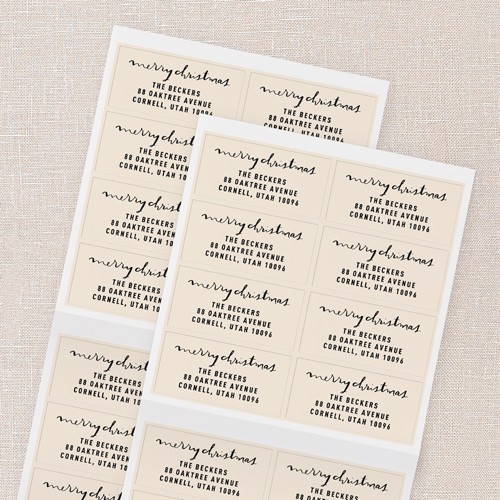 merry christmas
THE BECKERS
88 OAKTREE AVENUE
CORNELL, UTAH 10096
merry christmas
THE BECKERS
88 OAKTREE AVENUE
CORNELL, UTAH 10096
merry
THE BECKERS
88 OAKTREE
CORNELL, UTAH
merry
THE BECKERS
88 OAKTREE
CORNELL, UTAH
merry
THE BECKERS
88 OAKTREE
CORNELL, UTAH
merry
THE BECKERS
88 OAKTREE
CORNELL, UTAH
merry
THE BECKERS
88 OAKTREE
CORNELL, UTAH
merry
THE BECKERS
88 OAKTREE
merry christmas
THE BECKERS
88 OAKTREE AVENUE
CORNELL, UTAH 10096
merry christmas
THE BECKERS
88 OAKTREE AVENUE
CORNELL, UTAH 10096
merry christmas
THE BECKERS
88 OAKTREE AVENUE
CORNELL, UTAH 10096
merry christmas
THE BECKERS
88 OAKTREE AVENUE
CORNELL, UTAH 10096
merry christmas
THE BECKERS
88 OAKTREE AVENUE
CORNELL, UTAH 10096
merry christmas
THE BECKERS
88 OAKTREE AVENUE
CORNELL, UTAH 10096
merry christmas
THE BECKERS
88 OAKTREE AVENUE
CORNELL, UTAH 10096
merry christmas
THE BECKERS
88 OAKTREE AVENUE
CORNELL, UTAH 10096
merry christmas
THE BECKERS
88 OAKTREE AVENUE
CORNELL, UTAH 10096
merry christmas
THE BECKERS
88 OAKTREE AVENUE